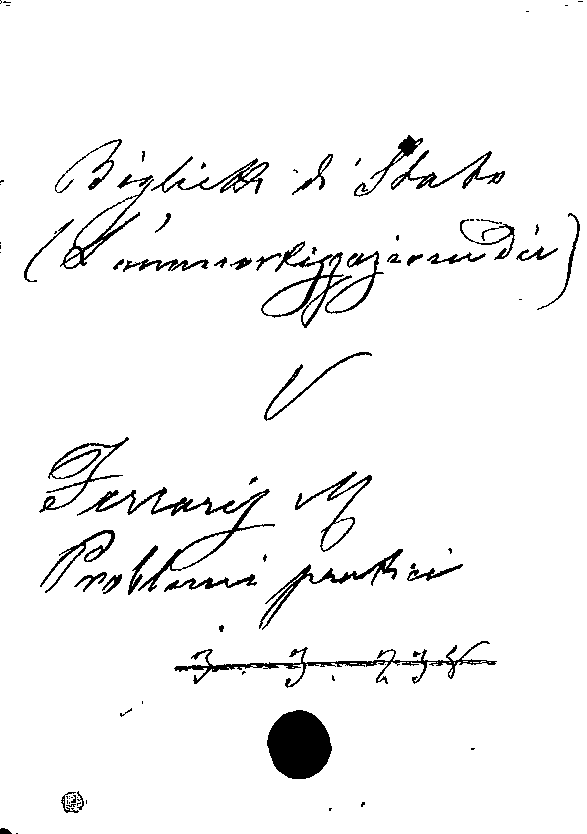 Biglietti di Stato
(L'ammortizzazione di)
V
Ferraris M
Problemi pratici
3. 3. 7. 35